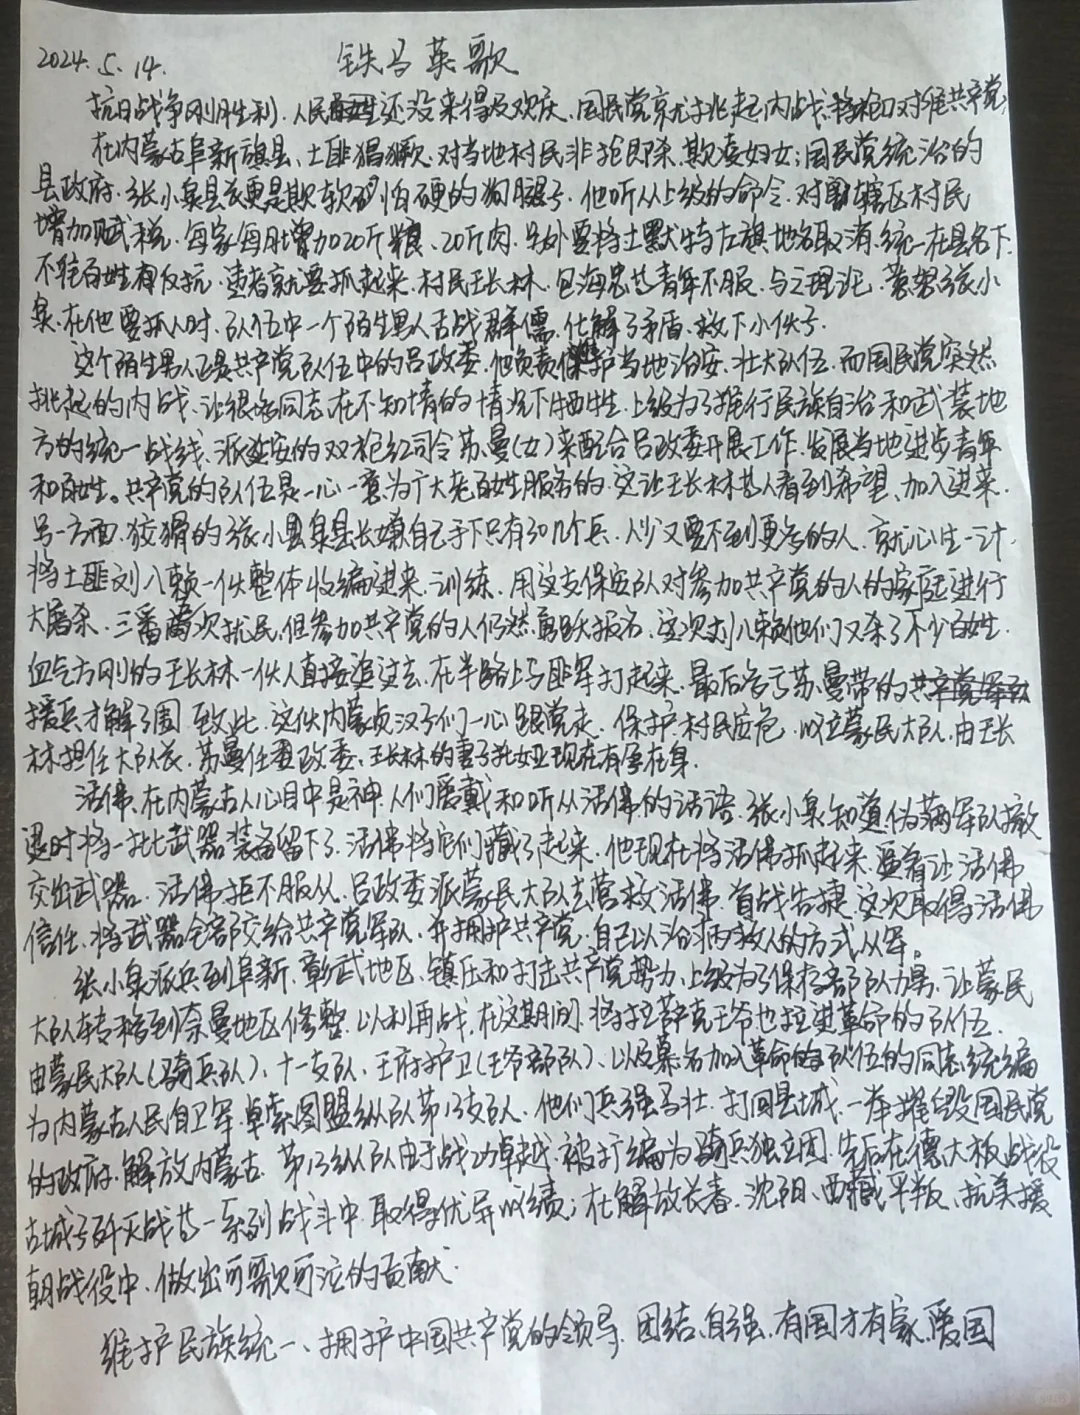 2024.5.14.
铁马英歌
抗日战争刚胜利.人民还没来得及欢庆、国民党就挑起内战.将枪口对准共产党;
在内蒙古阜新旗县、土匪猖獗.对当地村民非抢即杀.欺凌妇女;国民党统治的
县政府.张小泉县长更是欺软怕硬的狗腿子.他听从上级的命令.对辖区村民
增加赋税.每家每月增加20斤粮、20斤肉.另外要将土默特左旗地名取消.统一在县名下.
不管百姓有反抗.违者就要抓起来.村民王长林.包海忠等青年不服.与之理论.惹怒张小
泉.在他要抓人时.队伍中一个陌生男人舌战群儒.化解了矛盾.救下小伙子.
这个陌生男人正是共产党队伍中的吕政委.他负责保护当地治安、壮大队伍.而国民党突然
挑起的内战、让很多同志在不知情的情况下牺牲.上级为了推行民族自治和武装地
方的统一战线、派延安的双枪红司令苏曼(女)来配合吕政委开展工作、发展当地进步青年
和百姓。共产党的队伍是一心一意为广大老百姓服务的.这让王长林等人看到希望、加入进来.
另一方面.狡猾的张小泉县长嫌自己手下只有30几个兵、人少又要不到更多的人、就心生一计.
将土匪刘八赖一伙整体收编进来.训练、用这支保安队对参加共产党的人的家庭进行
大屠杀.三番两次扰民.但参加共产党的人仍然踊跃报名.这次刘八赖他们又杀了不少百姓.
血气方刚的王长林一伙人直接追过去.在半路上与匪军打起来.最后多亏苏曼带的
援兵才解了围.致此.这伙内蒙贞汉子们一心跟党走、保护村民安危.成立蒙民大队.由王长
林担任大队长.苏曼任政委、王长林的妻子托娅现在有孕在身.
活佛.在内蒙古人心目中是神.人们爱戴和听从活佛的话语.张小泉知道伪满军队撤
退时将一批武器装备留下了.活佛将它们藏了起来.他现在将活佛抓起来.逼着让活佛
交出武器.活佛拒不服从.吕政委派蒙民大队去营救活佛.首战告捷.这次取得活佛
信任.将武器全部交给共产党军队.并拥护共产党.自己以治病救人的方式从军。
张小泉派兵到阜新.彰武地区、镇压和打击共产党势力.上级为了保存各部队力量、让蒙民
大队转移到奈曼地区修整.以利再战.在这期间.将王爷也拉进革命的队伍.
由蒙民大队(骑兵队)、十一支队、王府护卫(王爷部队)、以及慕名加入革命的队伍的同志统编
为内蒙古人民自卫军.卓索图盟纵队第13支队.他们兵强马壮.打回县城.一举摧毁国民党
的政府.解放内蒙古.第13纵队由于战功卓越.被扩编为骑兵独立团.先后在德大板战役
古城子歼灭战等一系列战斗中.取得优异成绩;在解放长春、沈阳、西藏平叛、抗美援
朝战役中、做出可歌可泣的贡献.
维护民族统一、拥护中国共产党的领导.团结、自强、有国才有家、爱国